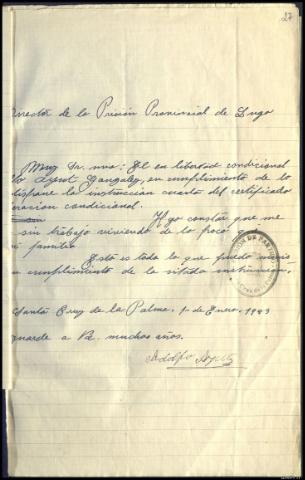 27
irector de la Prisión Provincial de Lugo
Muy Sr. mio: El en libertad condicional
González, en cumplimiento de lo
dispone la instrucción cuarta del certificado
eración condicional.
Hago constar que me
sin trabajo viviendo de lo poco
mi familia
Esto es todo lo que puedo
n cumplimiento de la citada
Santa Cruz de la Palma, 1 de Enero, 1943
guarde a Vd. muchos años.
Adolfo